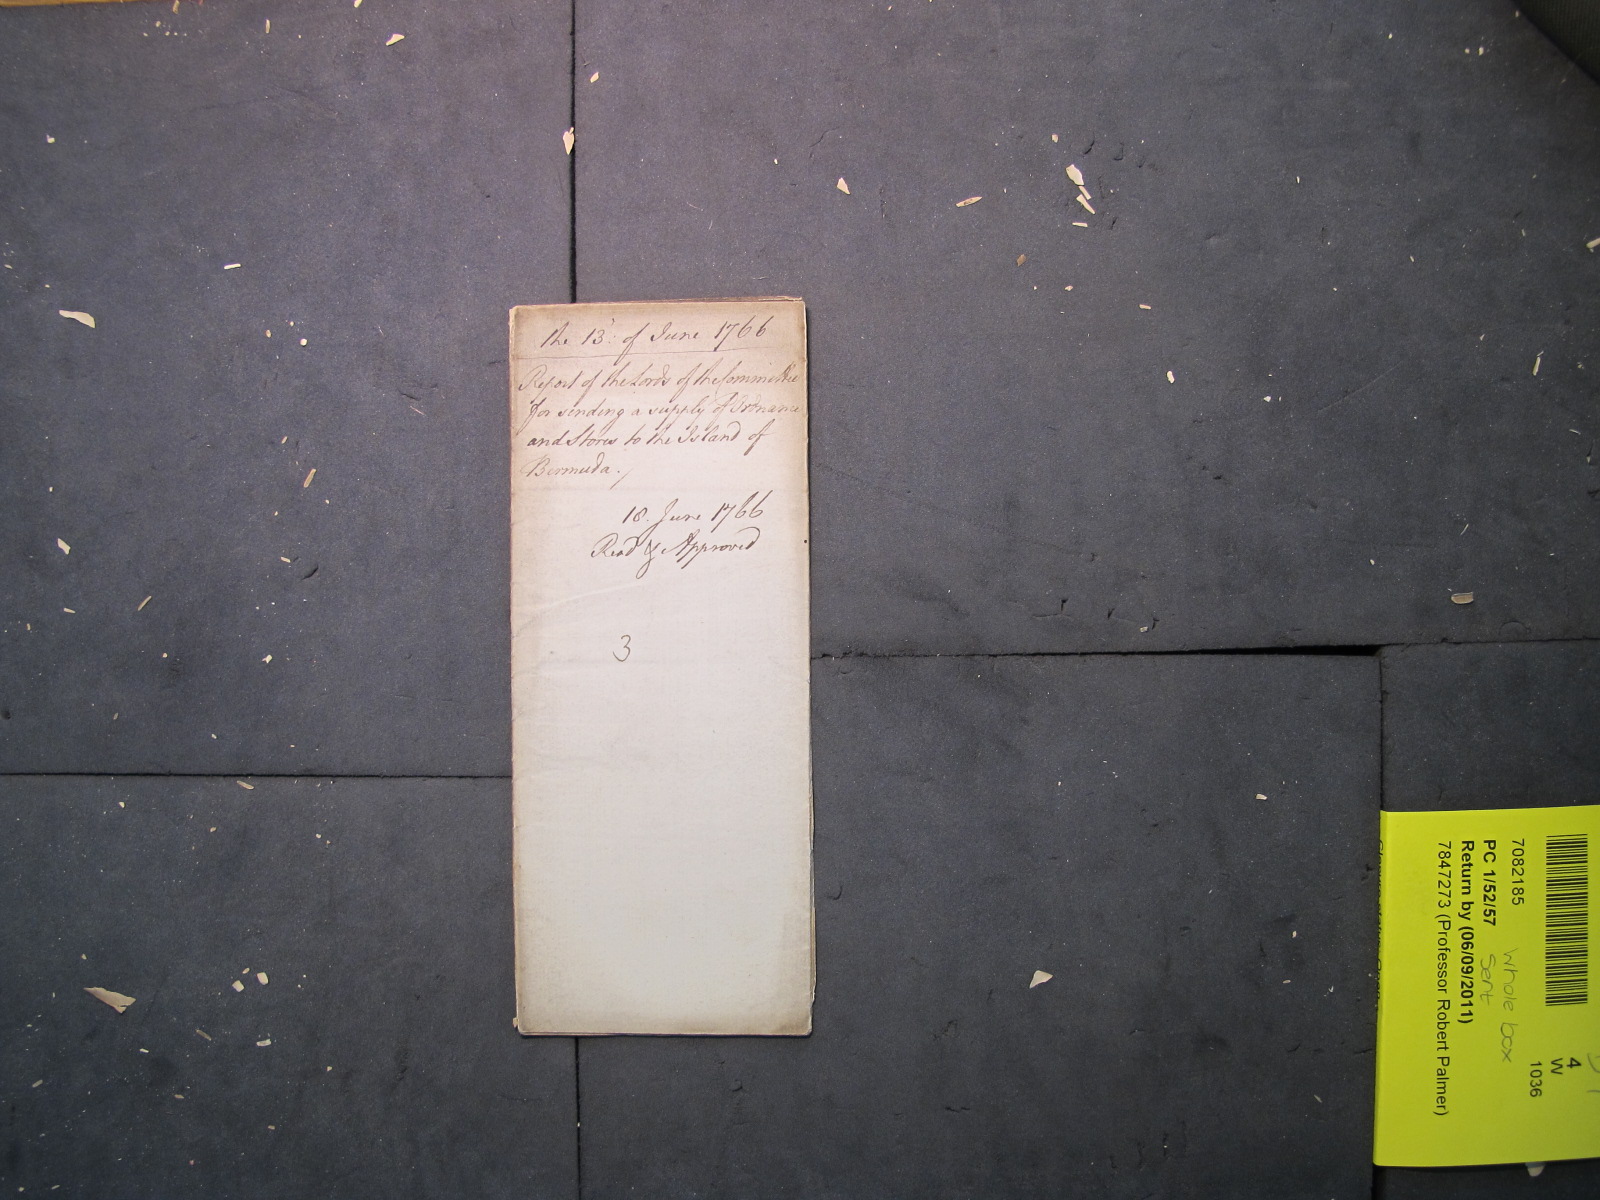 the 13: of June 1766
Report of the Lords of the Committee
for sending a supply of Ordnance
and Stores to the Island of
Bermuda./
18. June 1766
Read & Approved
3
7082185
PC 1/52/57
Return by (06/09/2011)
7847273 (Professor Robert Palmer)
whole box
sent
4
W
1036